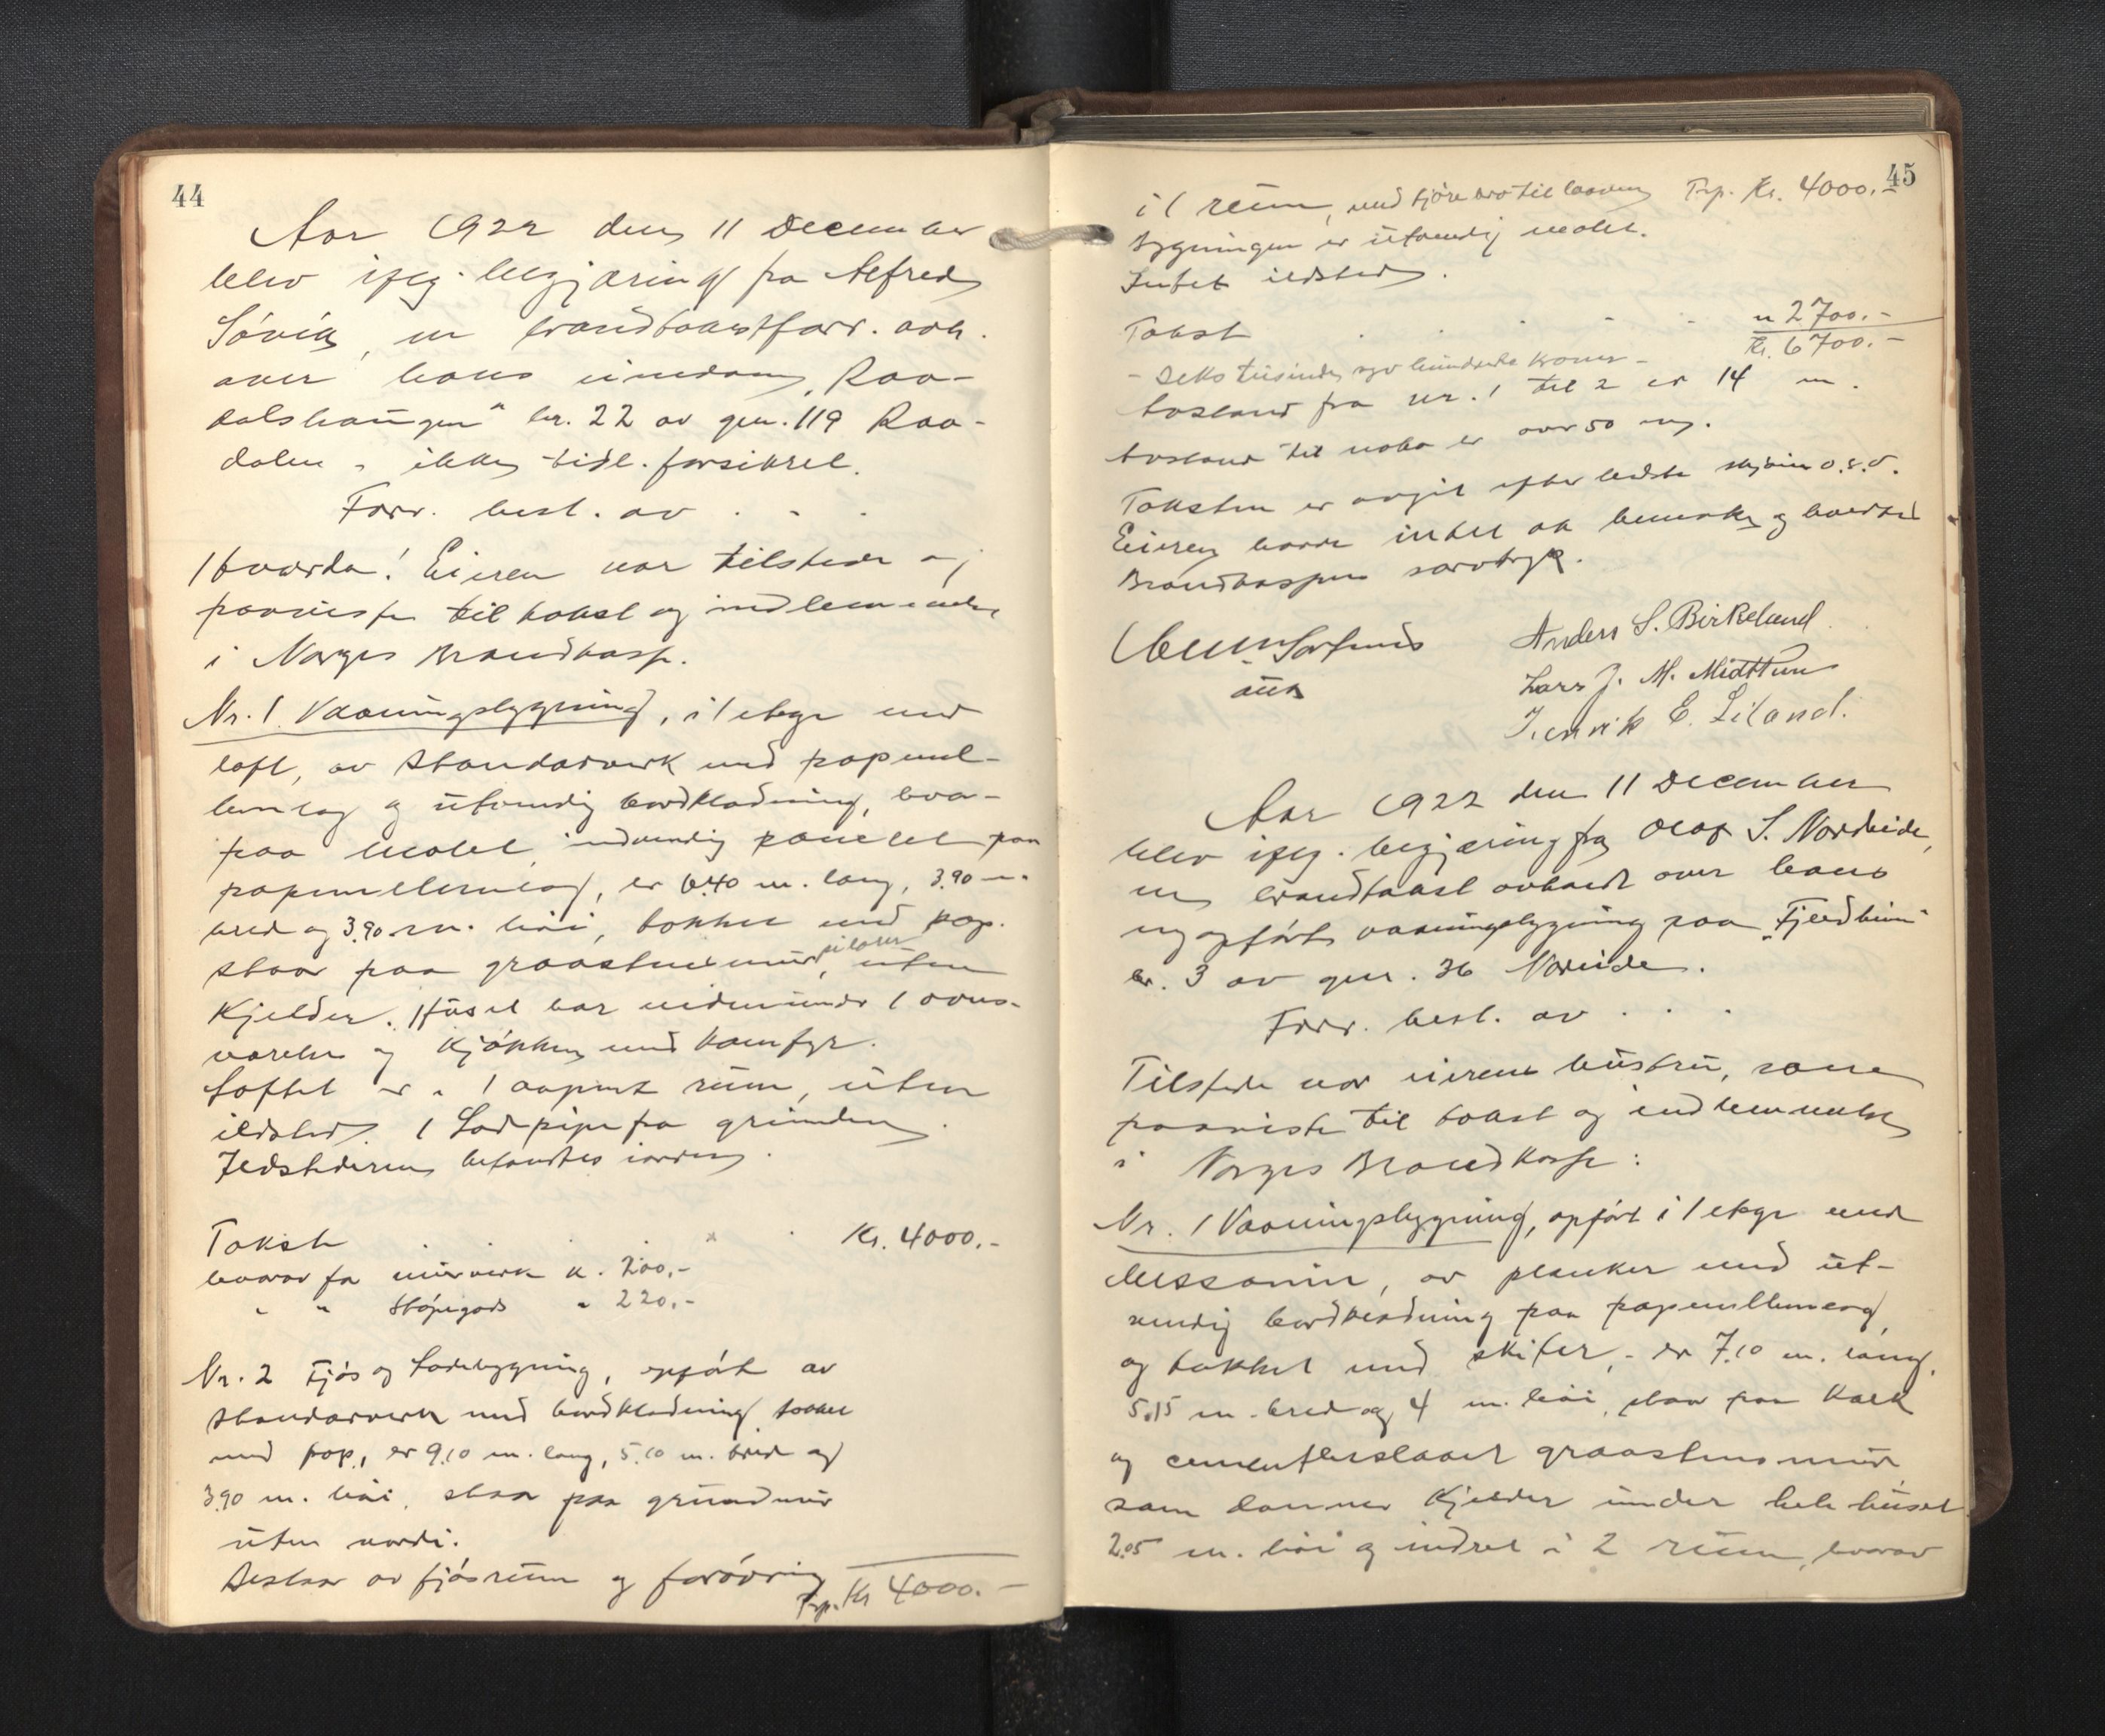 44
Aar 1922 den 11 December
blev ifølg. begjæring fra Alfred
Søvik, en brandtakstforr. avh.
over hans eiendom „Raa-
dalshaugen" br. 22 av gnr. 119 Raa-
dalen, ikke tidl. forsikret.
Forr. best. av . . .
Hvorda! Eieren var tilstede og
paaviste til takst og indlemmelse
i Norges Brandkasse.
Nr. 1 Vaaningsbygning, i 1 etage med
loft, av standarverk med papmel-
lemlag og utvendig bordklædning, hvor-
paa malet, indvendig panelet paa
papmellemlag, er 6.40 m. lang, 3.90 m.
bred og 3.90 m. høi, tækket med pap.
pilarer
Staar paa graastensmur, uten
Kjelder. Huset har nedenunder 1 ovns-
værelse og kjøkken med komfyr.
Loftet er 1 aapent rum, uten
ildsted. 1 Lodpipe fra grunden.
Ildstederne befandtes iorden.
Takst . . . . Kr. 4000.-
hvorav for murverk kr. 200.-
" " Støpegods " 220.-
Nr. 2 Fjøs og Ladebygning, opført av
standarverk med bordklædning tækket
med pap, er 9.10 m. lang, 5.10 m. bred og
3.90 m. høi, staar paa grundmur
uten værdi.
Bestaar av fjøsrum og forøvrig
Trp. Kr 4000.-
45
i 1 rum, med kjørebro til laaven Trp. Kr. 4000.-
Bygningen er utvendig malet.
Intet ildsted.
Takst . . . . . " 2700.-
Kr. 6700.-
- Seks tusinde syv hundrede kroner -
Avstand fra nr. 1 til 2 er 14 m.
Avstand til nabo er over 50 m.
Taksten er avgit efter bedste skjøn o.s.v.
Eieren havde intet at bemerke og
Brandkassens særtryk.
Anders S. Birkeland
Lars J. M. Midttun
Henrik E. Liland.
Aar 1922 den 11 December
blev ifølg. begjæring fra Olaf S. Nordeide,
en brandtakst avholdt over hans
nyopførte vaaningsbygning paa „Fjeldheim"
br. 3 av gnr. 36 Nordeide.
Forr. best. av . . .
Tilstede var eierens hustru, som
paaviste til takst og indlemmelse
i Norges Brandkasse:
Nr. 1 Vaaningsbygning, opført i 1 etage med
Messanin, av planker med ut-
vendig bordklædning paa papmellemlag,
og tækket med skifer, - er 7.10 m. lang,
5.15 m. bred og 4 m. høi, staar paa kalk
og cementberslaaet graastensmur
som danner Kjelder under hele huset
2.05 m. høi og indret i 2 rum, hvorav